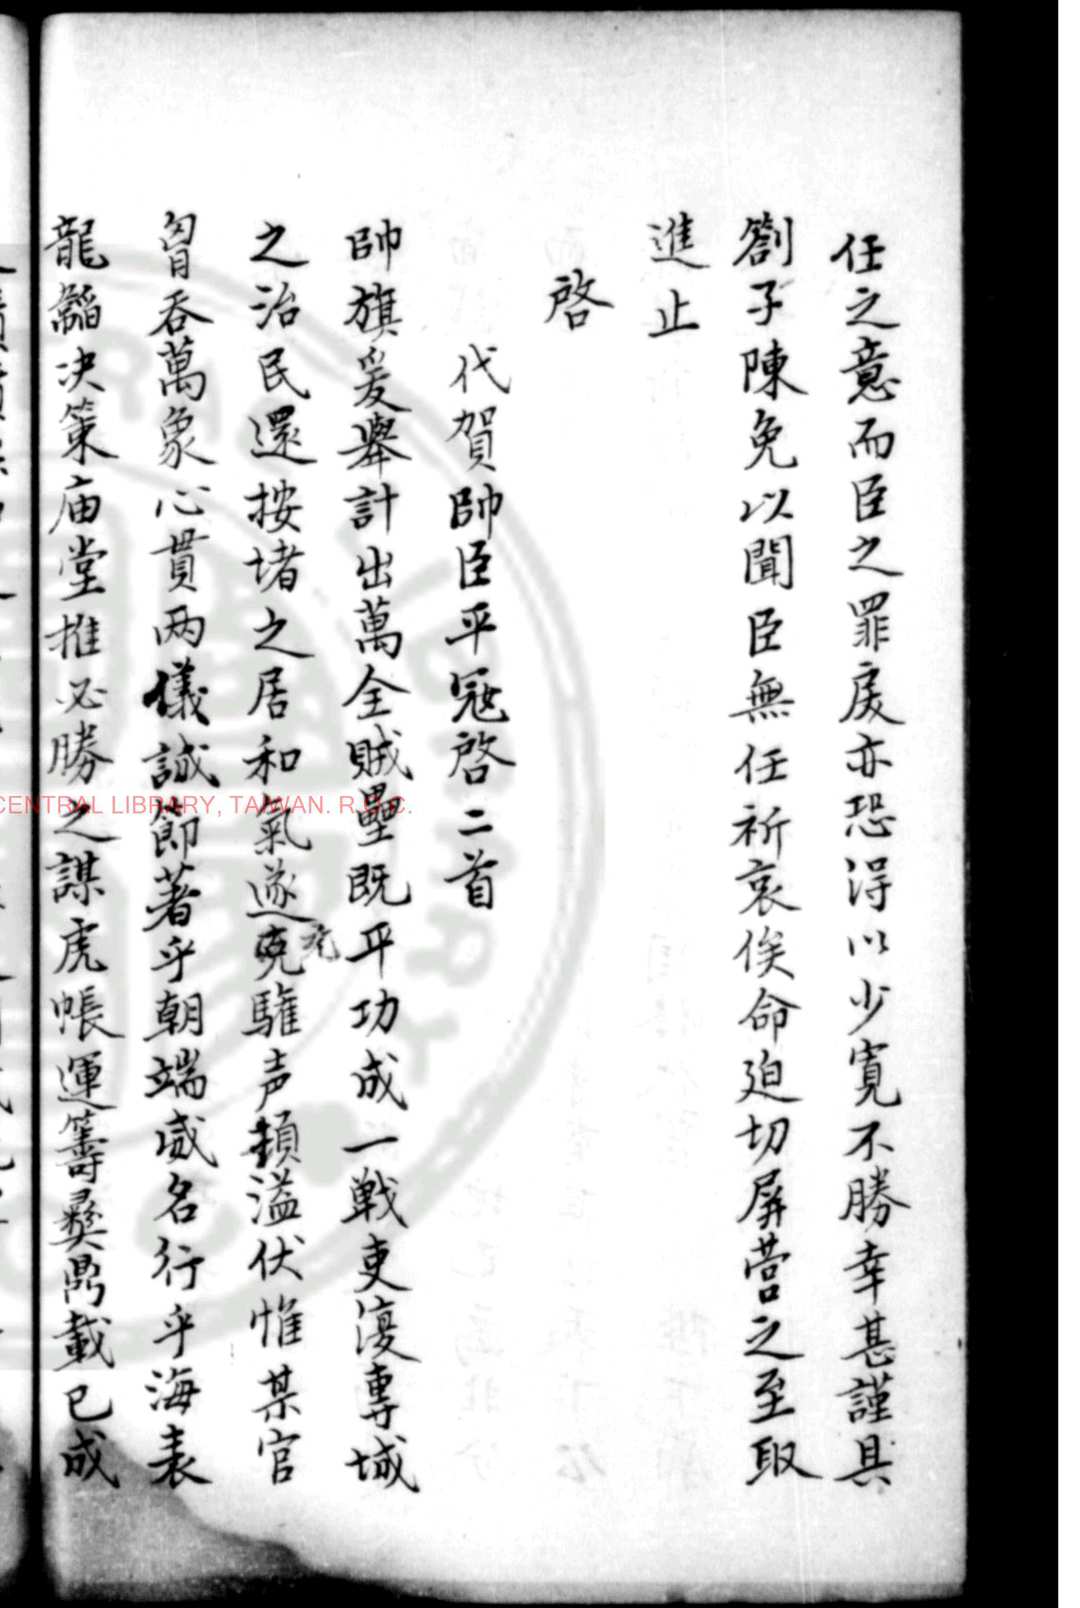 任之意而臣之罪戾亦恐淂以少寛不勝幸甚謹具
劄子陳免以聞臣無任祈哀俟命迫切屏营之至取
進止
啓
代賀帥臣平冦啓二首
帥旗爰舉計出萬全賊壘既平功成一戦吏復專城
之治民還按堵之居和氣遂充驩声頻溢伏惟某官
胷吞萬象心貫两儀誠節著乎朝端威名行乎海表
龍韜决策庙堂推必勝之謀虎帳運籌彝鼎載已成
CENTRAL LIBRARY, TAIWAN. R.O.C.